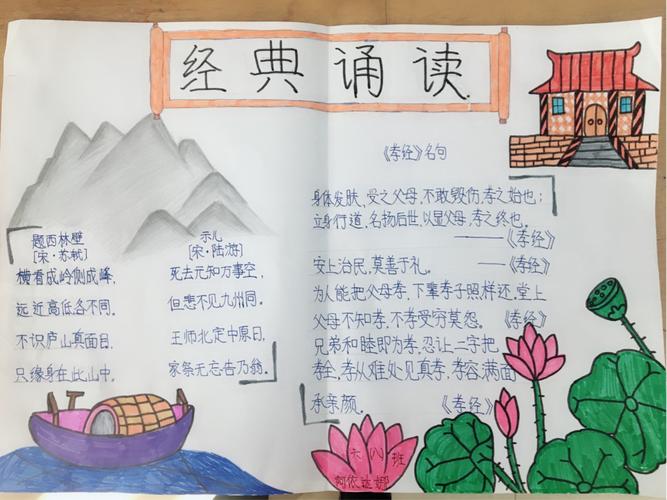 经典诵读
题西林壁
[宋·苏轼]
横看成岭侧成峰,
远近高低各不同。
不识庐山真面目,
只缘身在此山中。
示儿
[宋·陆游]
死去元知万事空,
但悲不见九州同。
王师北定中原日,
家祭无忘告乃翁。
《孝经》名句
身体发肤,受之父母,不敢毁伤,孝之始也;
立身行道,名扬后世,以显父母,孝之终也。
——《孝经》
安上治民,莫善于礼。——《孝经》
为人能把父母孝,下辈孝子照样还,堂上
父母不知孝,不孝受穷莫怨。《孝经》
兄弟和睦即为孝,忍让二字把
孝全,孝从难处见真孝,孝容满面
承亲颜。《孝经》
六八班
阿依达娜